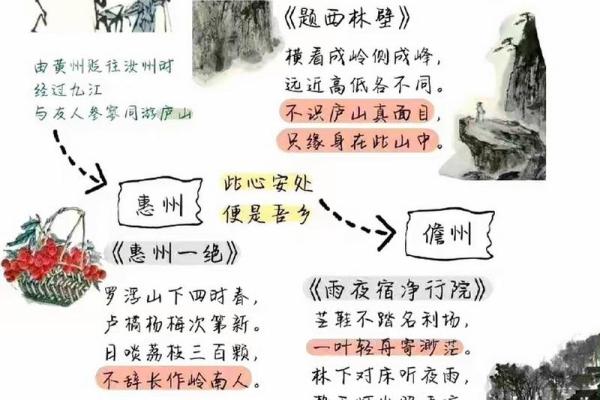 《题西林壁》
横看成岭侧成峰，
远近高低各不同。
不识庐山真面目，
只缘身在此山中。
由黄州贬往汝州时
经过九江
与友人参寥同游庐山
惠州
此心安处
便是吾乡
儋州
《惠州一绝》
罗浮山下四时春，
卢橘杨梅次第新。
日啖荔枝三百颗，
不辞长作岭南人。
《雨夜宿净行院》
芒鞋不踏名利场，
一叶轻舟寄渺茫。
林下对床听夜雨，